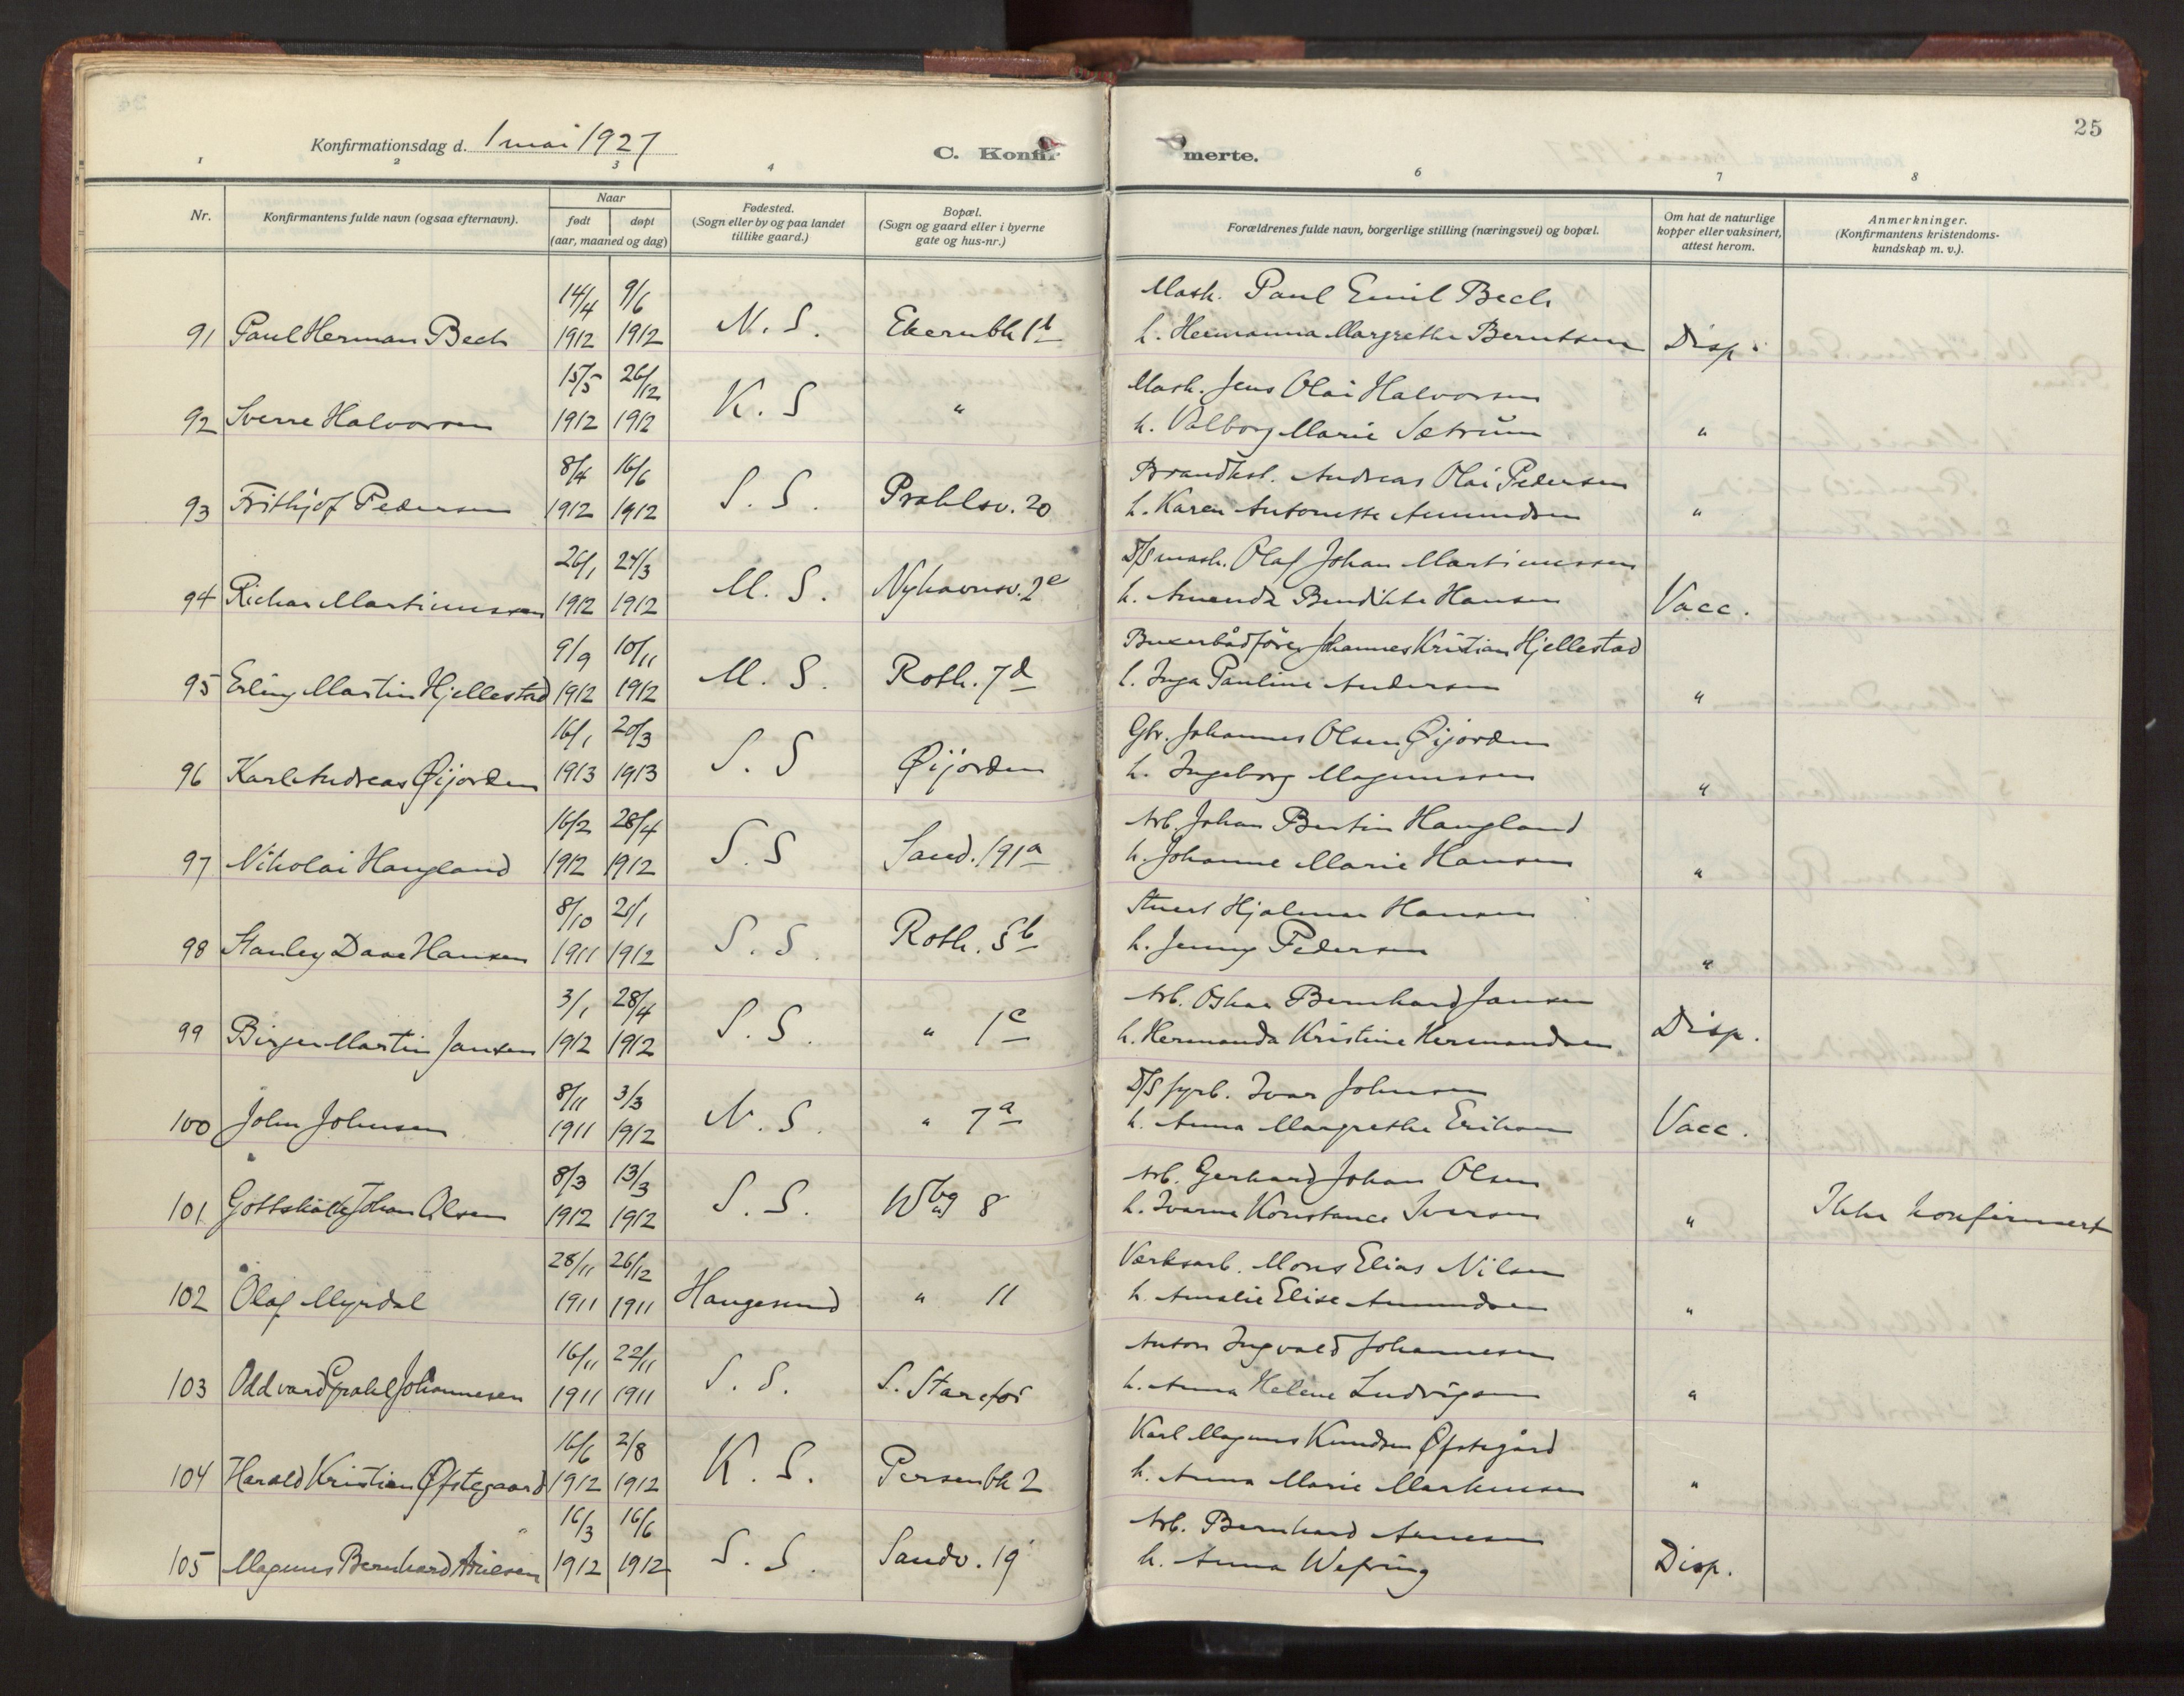 25
Konfirmationsdag d. 1 mai 1927
C. Konfir
merte.
1 2 3 4 6 7 8
Nr.
Konfirmantens fulde navn (ogsaa efternavn).
Naar
født døpt
(aar, maaned og dag)
Fødested.
(Sogn eller by og paa landet
tillike gaard.)
Bopæl.
(Sogn og gaard eller i byerne
gate og hus-nr.)
Forældrenes fulde navn, borgerlige stilling (næringsvei) og bopæl.
Om hat de naturlige
kopper eller vaksinert,
attest herom.
Anmerkninger.
(Konfirmantens kristendoms-
kundskap m. v.).
14/4 9/6 Mask. Paul Emil Bech
91 Paul Herman Bech 1912 1912 N. S. Ekernbk 1b h. Hermanna Margrethe Berntsen Disp.
15/5 26/12 Mask. Jens Olai Halvorsen
92 Sverre Halvorsen 1912 1912 K. S " h. Valborg Marie Sætrum "
8/4 16/6 Brandkst. Andreas Olai Pedersen
93 Frithjof Pedersen 1912 1912 S. S. Prahlsv. 20 h. Karen Antonette Amundsen "
26/1 24/3 D/S mask. Olaf Johan Martinussen
94 Richar Martinussen 1912 1912 M. S. Nyhavnsv. 2e h. Amanda Bendikte Hansen Vacc.
9/9 10/11 Buxerbådfører Johannes Kristian Hjellestad
95 Erling Martin Hjellestad 1912 1912 M. S. Roth. 7d h. Inga Pauline Andersen "
16/1 20/3 Gbr. Johannes Olsen Øijorden
96 Karl Andreas Øijorden 1913 1913 S. S Øijorden h. Ingeborg Magnussen "
16/2 28/4 Arb. Johan Bertin Haugland
97 Nikolai Haugland 1912 1912 S. S Sandv. 191a h. Johanne Marie Hansen "
8/10 21/1 Stuert Hjalmar Hansen
98 Stanley Dave Hansen 1911 1912 S. S. Roth. 5b h. Jenny Pedersen "
3/1 28/4 Arb. Oskar Bernhard Jansen
99 Birger Martin Jansen 1912 1912 S. S. " 1c h. Hermanda Kristine Hermandsen Disp.
8/11 3/3 D/S fyrb. Ivar Johnsen
100 John Johnsen 1911 1912 N. S. " 7a h. Anna Margrethe Eriksen Vacc.
8/3 13/3 Arb. Gerhard Johan Olsen
101 Gottskalk Johan Olsen 1912 1912 S. S. Wbg 8 h. Ivarna Konstance Iversen " Ikke konfirmert
28/11 26/12 Værksarb. Mons Elias Nilsen
102 Olaf Myrdal 1911 1911 Haugesund " 11 h. Amalie Elise Amundsen "
16/11 22/11 Anton Ingvald Johannesen
103 Oddvard Prahl Johannesen 1911 1911 S. S. S. Starefos h. Anna Helene Ludvigsen "
16/6 2/8 Karl Magnus Knudsen Øfstegård
104 Harald Kristian Øfstegaard 1912 1912 K. S. Persenbk 2 h. Anna Marie Markussen "
16/3 16/6 Arb. Bernhard Arnesen
105 Magnus Bernhard Arnesen 1912 1912 S. S. Sandv. 19 h. Anna Wefring Disp.